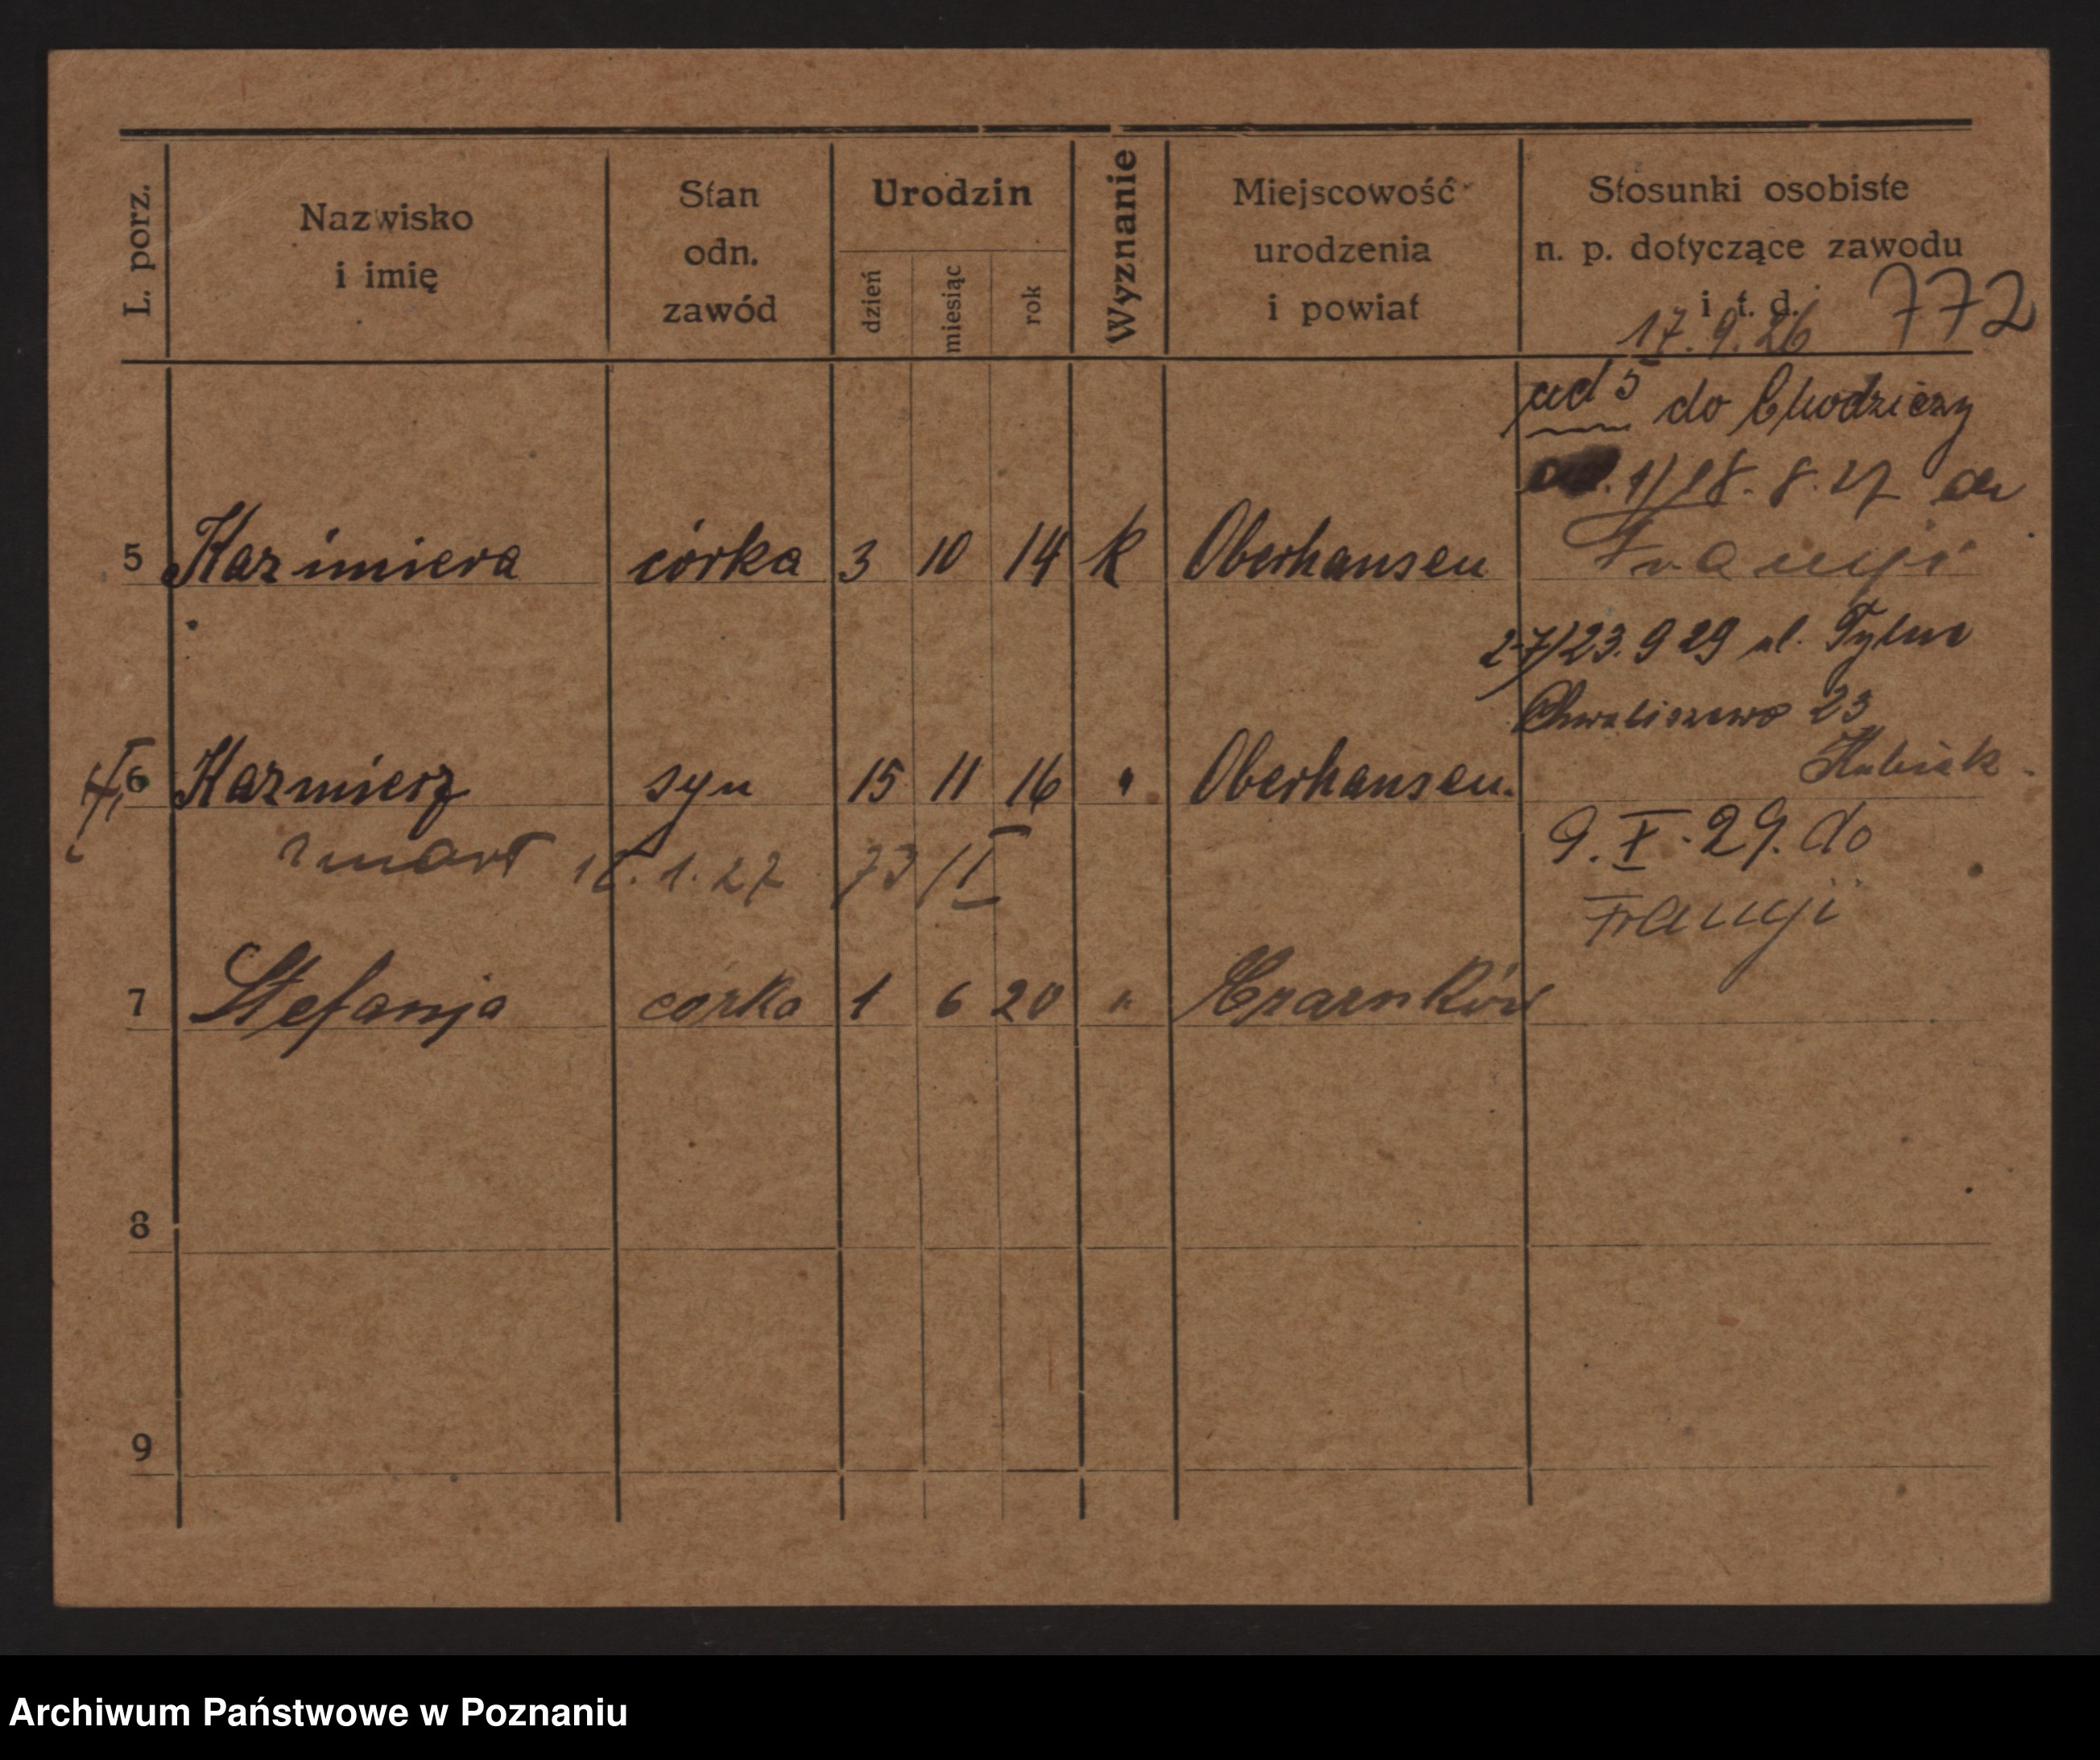 L. porz.
Nazwisko
i imię
Stan
odn.
zawód
Urodzin
dzień
miesiąc
rok
Wyznanie
Miejscowość
urodzenia
i powiat
Stosunki osobiste
n. p. dotyczące zawodu
i t. d.
772
17.9.26
ad 5 do Chodzieży
1) 18.8.27 do
Francji
5 Kazimiera córka 3 10 14 k Oberhausen
2-7/23.9 29 ul. Tylne
Chwaliszewo 23
Kubiak
6 Kazmierz syn 15 11 16 " Oberhausen.
zmarł 1. 27 73/I
9. X. 29. do
Francji
7 Stefanja córka 1 6 20 " Czarnków
8
9
Archiwum Państwowe w Poznaniu